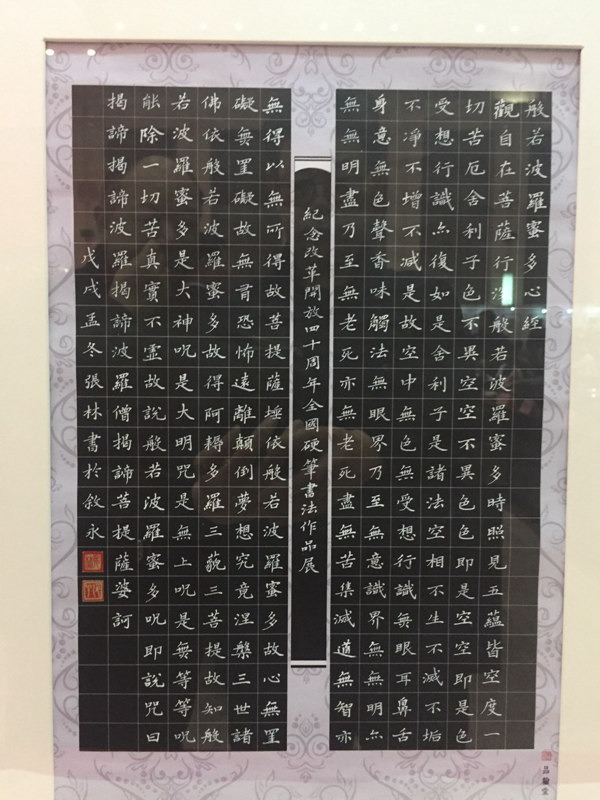 般若波羅蜜多心経
觀自在菩薩行深般若波羅蜜多時照見五蘊皆空度一
切苦厄舍利子色不異空空不異色色即是空空即是色
受想行識亦復如是舍利子是諸法空相不生不滅不垢
不淨不增不減是故空中無色無受想行識無眼耳鼻舌
身意無色聲香味觸法無眼界乃至無意識界無無明亦
無無明盡乃至無老死亦無老死盡無苦集滅道無智亦
紀念改革開放四十周年全國硬筆書法作品展
無得以無所得故菩提薩埵依般若波羅蜜多故心無罣
礙無罣礙故無有恐怖遠離顛倒夢想究竟涅槃三世諸
佛依般若波羅蜜多故得阿耨多羅三藐三菩提故知般
若波羅蜜多是大神呪是大明咒是無上呪是無等等呪
能除一切苦真實不虛故說般若波羅蜜多呪即說咒曰
揭諦揭諦波羅揭諦波羅僧揭諦菩提薩婆訶
戊戌孟冬張林書於敘永